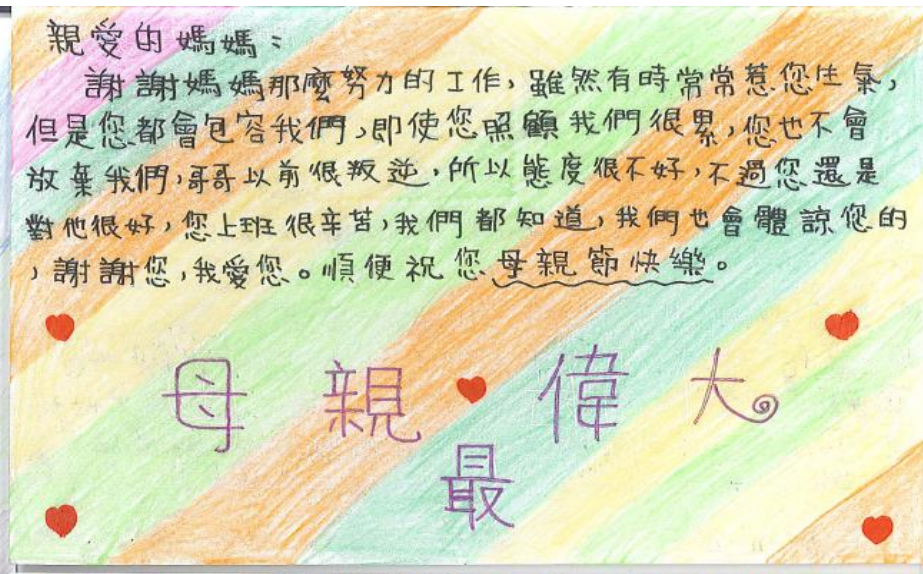 親愛的媽媽：
謝謝媽媽那麼努力的工作，雖然有時常常惹您生氣，
但是您都會包容我們，即使您照顧我們很累，您也不會
放棄我們，哥哥以前很叛逆，所以態度很不好，不過您還是
對他很好，您上班很辛苦，我們都知道，我們也會體諒您的
，謝謝您，我愛您。順便祝您母親節快樂。
母親偉大
最